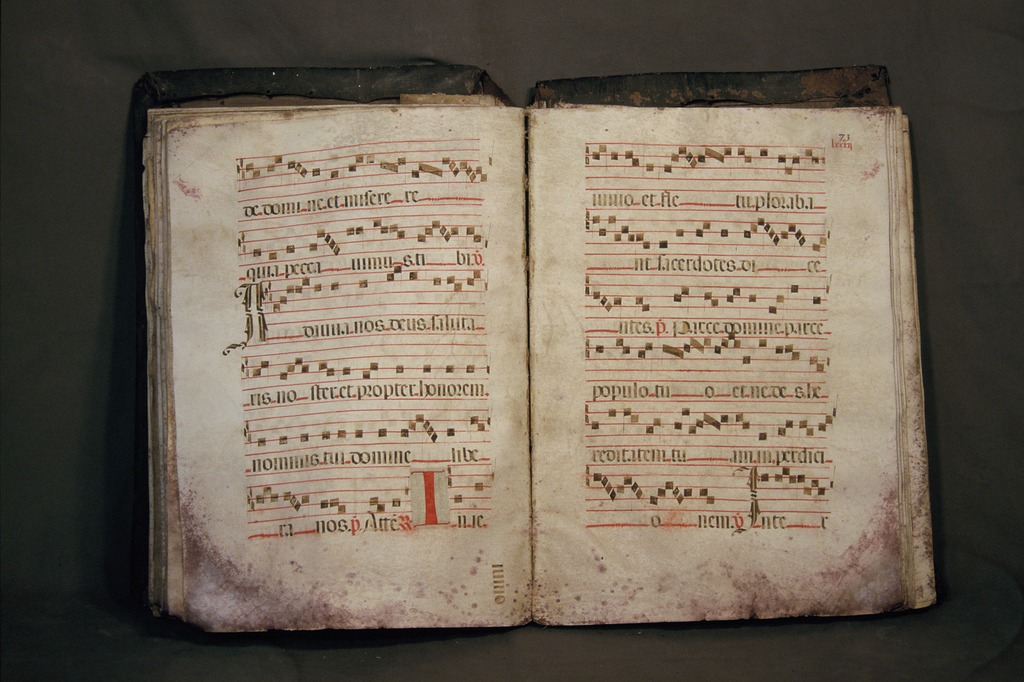 de domi ne et misere re
quia pecca uimus ti bi. v̕.
A diuua nos deus saluta
ris no ster et propter honorem
nominis tui domine libe
ra nos. p̕. Atte R I n ie
iunio
71
lxxxj
iunio et fle tu ploraba
nt sacerdotes di ce
ntes. p̕. Parce domine parce
populo tu o et ne de s he
reditatem tu am in perdici
o nem. v̕ Inte r